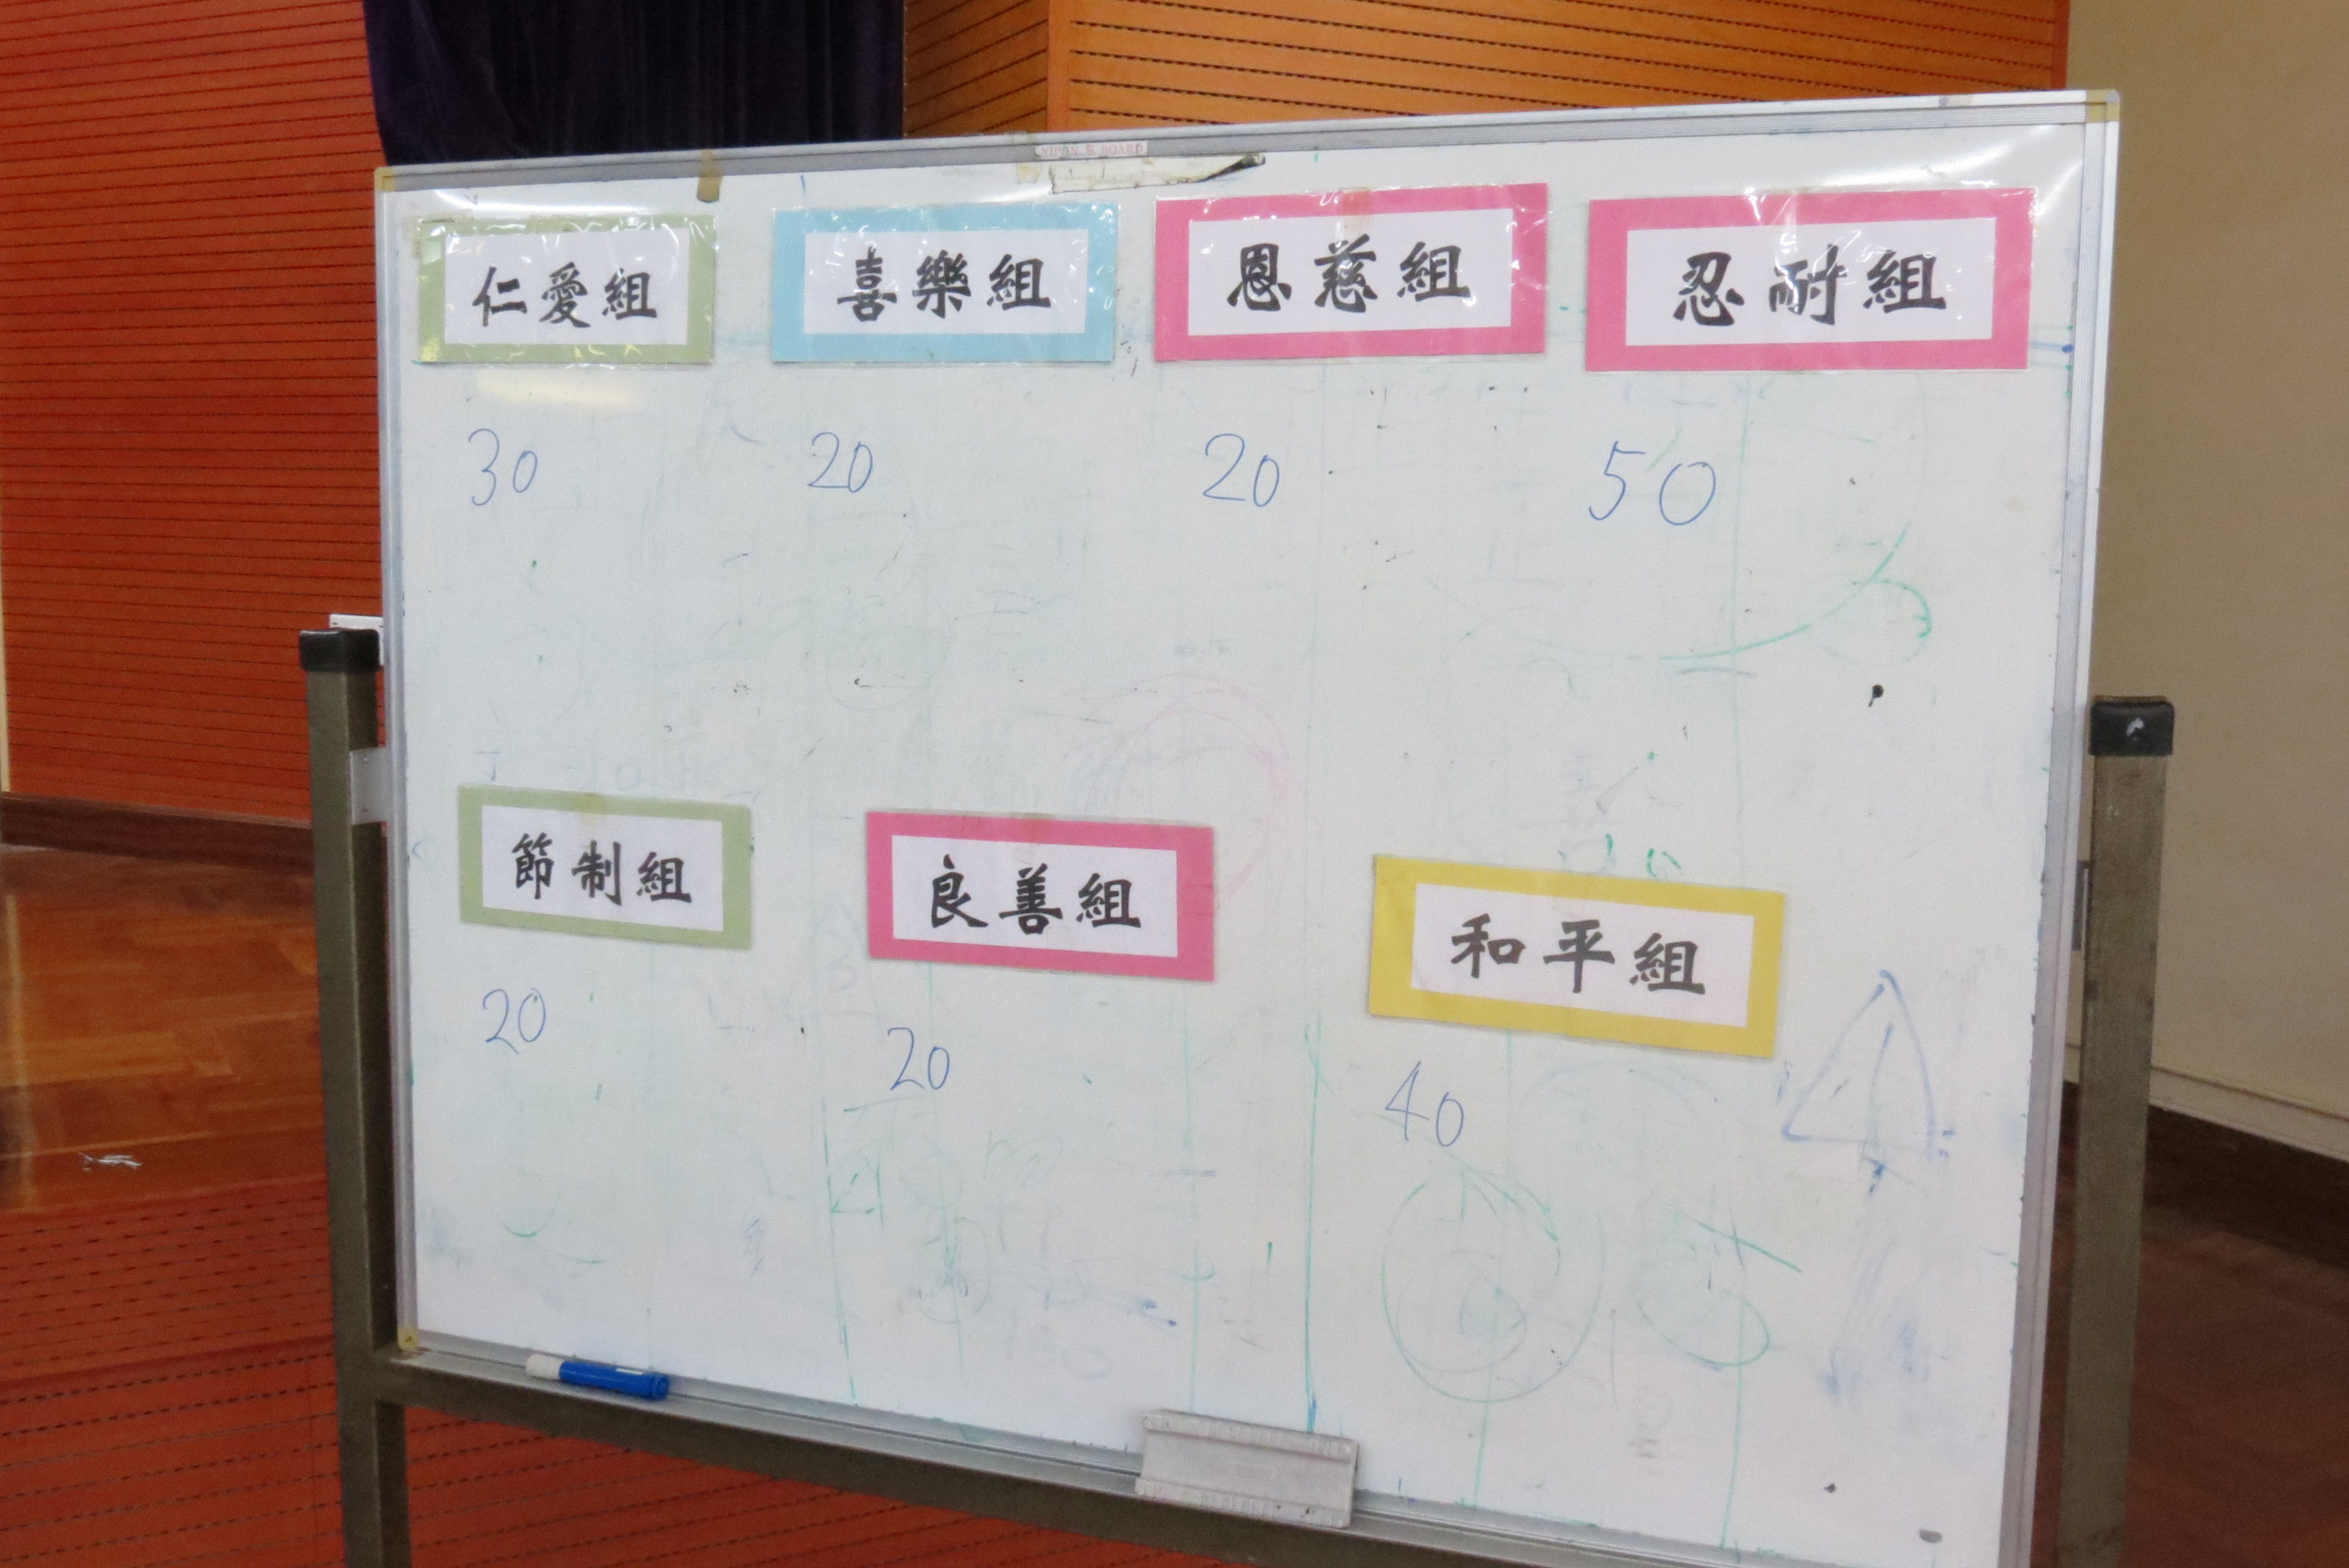 NIPON S BOARD
仁愛組 喜樂組 恩慈組 忍耐組
30 20 20 50
節制組 良善組 和平組
20 20 40